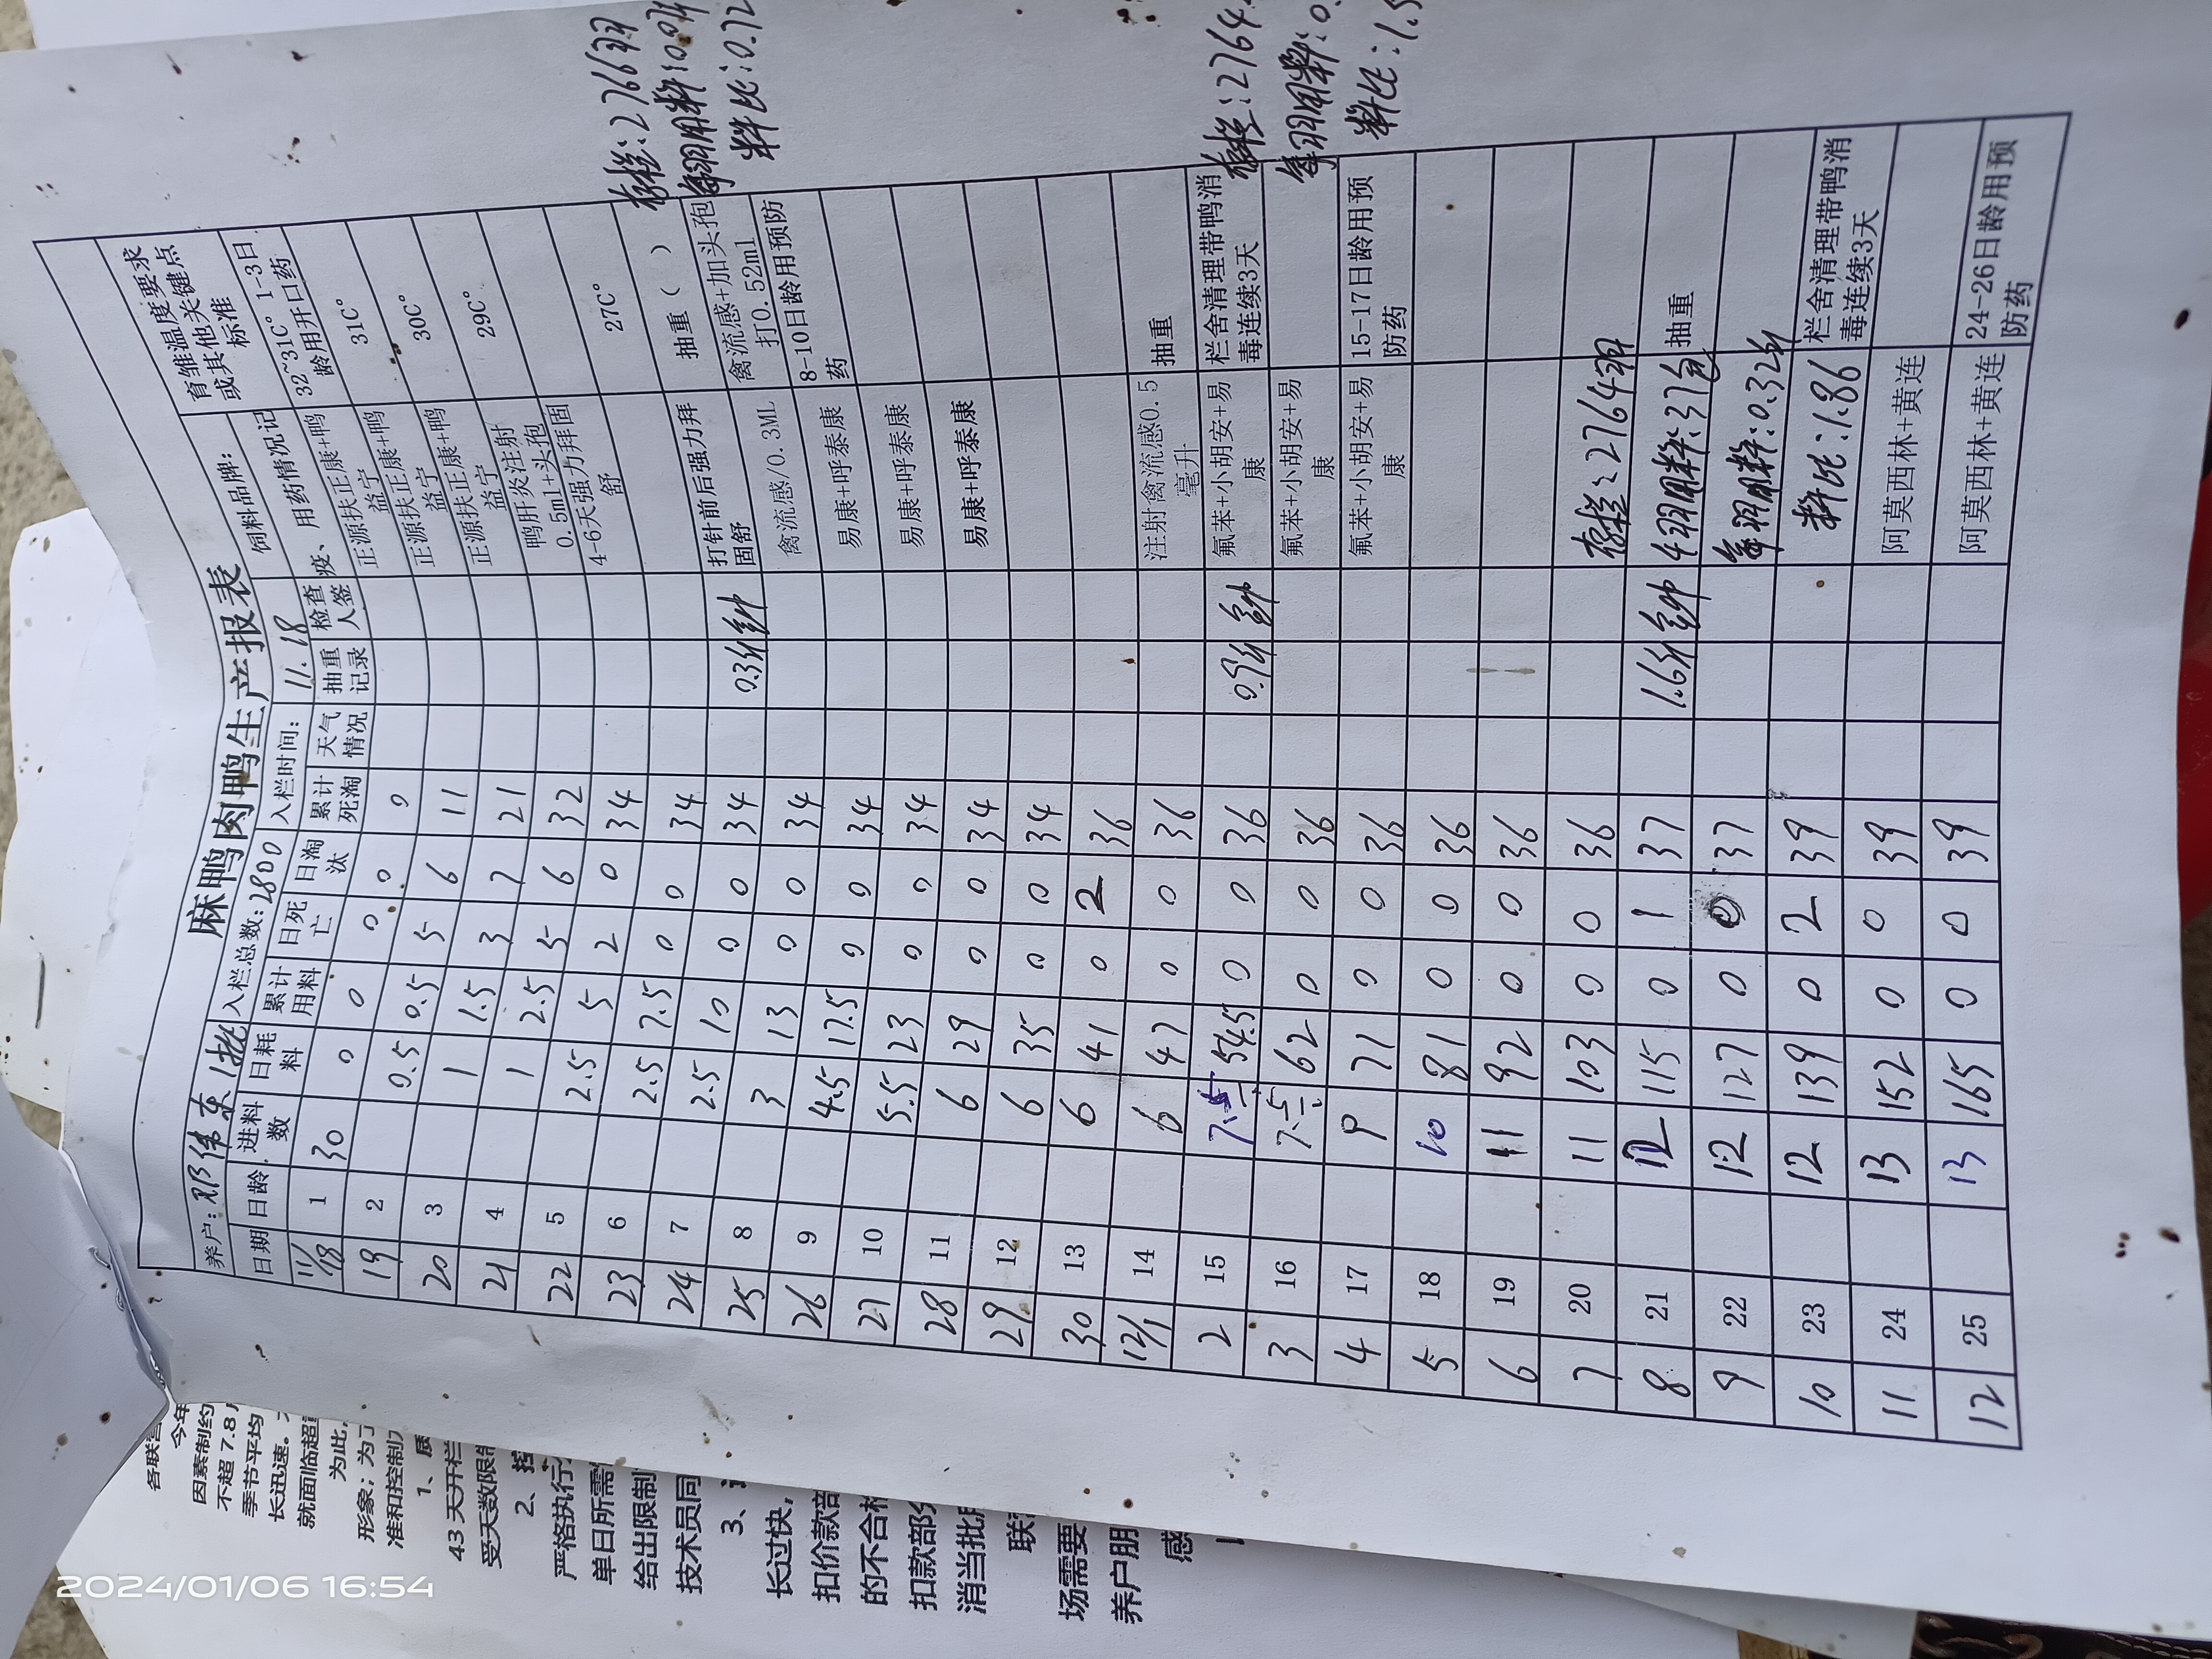 麻鸭肉鸭生产报表
养户: 邓伟东 1批 入栏总数: 2800 入栏时间: 11.18 饲料品牌:
日期 日龄 进料数 日耗料 累计用料 日死亡 日淘汰 累计死淘 天气情况 抽重记录 检查人签 疫、用药情况记 育雏温度要求或其他关键点标准
11/18 1 30 0 0 0 0 0 正源扶正康+鸭益宁 32~31C° 1-3日龄用开口药
19 2 0.5 0.5 5 6 11 正源扶正康+鸭益宁 31C°
20 3 1 1.5 3 7 21 正源扶正康+鸭益宁 30C°
21 4 1 2.5 5 6 32 鸭肝炎注射0.5ml+头孢 29C°
22 5 2.5 5 2 0 34 4-6天强力拜固舒
23 6 2.5 7.5 0 0 34 27C°
24 7 2.5 10 0 0 34 0.3斤/羽 打针前后强力拜固舒 抽重（ ）
25 8 3 13 0 0 34 禽流感/0.3ML 禽流感+加头孢打0.52ml
26 9 4.5 17.5 0 0 34 易康+呼泰康 8-10日龄用预防药
27 10 5.5 23 0 0 34 易康+呼泰康
28 11 6 29 0 0 34 易康+呼泰康
29 12 6 35 0 0 34
30 13 6 41 0 2 36
12/1 14 6 47 0 0 36 注射禽流感0.5毫升 抽重
2 15 7.5 54.5 0 0 36 0.9斤 氟苯+小胡安+易康 栏舍清理带鸭消毒连续3天
3 16 7.5 62 0 0 36 氟苯+小胡安+易康
4 17 9 71 0 0 36 氟苯+小胡安+易康 15-17日龄用预防药
5 18 10 81 0 0 36
6 19 11 92 0 0 36
7 20 11 103 0 0 36 存栏:2764羽
8 21 12 115 0 1 37 1.6斤 用料:37包 抽重
9 22 12 127 0 0 37 每羽用料:0.32斤
10 23 12 139 0 2 39 料比:1.86 栏舍清理带鸭消毒连续3天
11 24 13 152 0 0 39 阿莫西林+黄连
12 25 13 165 0 0 39 阿莫西林+黄连 24-26日龄用预防药
存栏:2766羽
每羽用料:0.
料比:0.72
存栏:2764
每羽用料:0.
料比:1.5
各联营
今年
因素制约
不超 7.8
季节平均
长迅速。
就面临超
为此,
形象;为了
准和控制
1、质
43 天开栏
受天数限制
2、控
严格执行
单日所需
给出限制
技术员同
3、
长过快,
扣价款部
的不合格
扣款部分
消当批
联
场需要
养户朋
感
2024/01/06 16:54